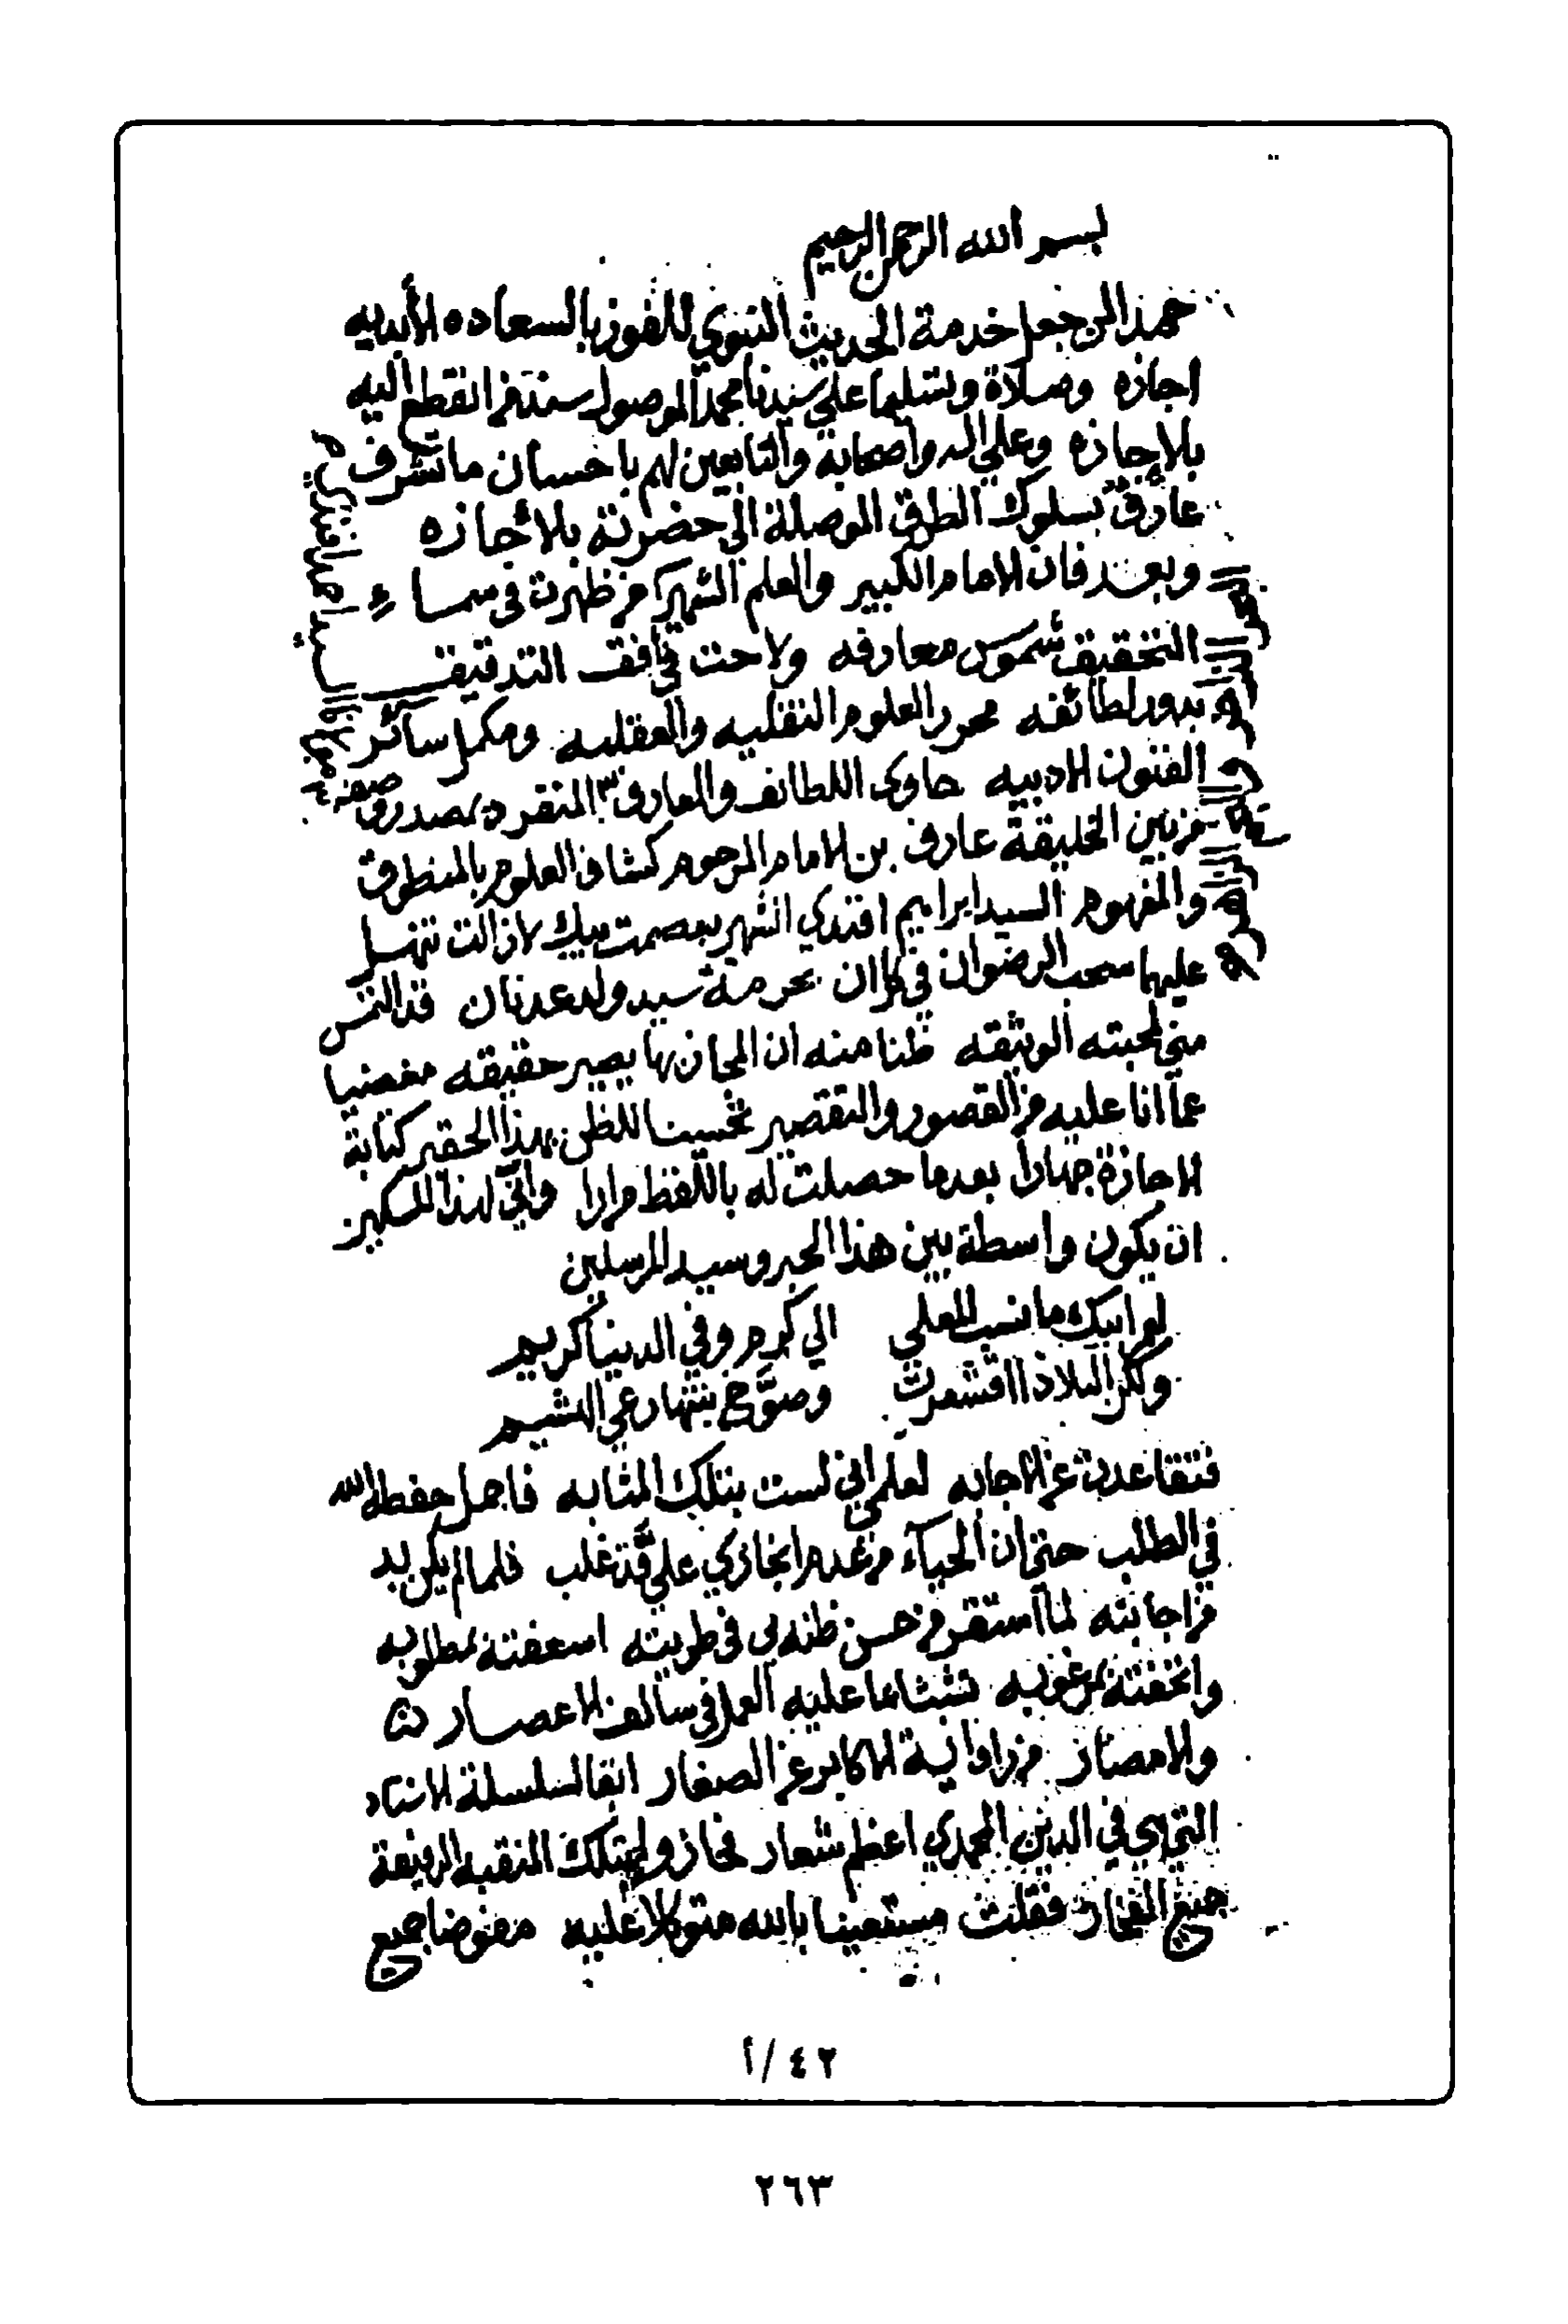 بسم الله الرحمن الرحيم
حمدا لمن جعل خدمة الحديث النبوي للفوز بالسعاده الأبديه
اجازه وصلاة وتسليما على سيدنا محمد الموصول سند من انقطع اليه
بلا اجازه وعلى اله واصحابه والتابعين لهم باحسان ما تشرف
عارف بسلوك الطرق الموصلة الى حضرته بلا اجازه
وبعد فان الامام الكبير والعلم الشهير من ظهرت في سماء
التحقيق شموس معارفه ولاحت في افق التدقيق
بدور لطائفه محرر العلوم النقليه والعقليه ومكمل سائر
الفنون الادبيه حاوى اللطائف والمعارف ٣ المتفرد
من بين الخليقة عارف بن الامام المرحوم كشاف العلوم بالمنطوق
والمفهوم السيد ابراهيم افندي الشهير بعصمت بيك لا زالت تنهل
عليهما سحب الرضوان في كل ان بحرمة سيد ولد عدنان قد التمس
مني لمحبته الوثيقه ظنا منه ان المجاز بها يصير حقيقه مغضيا
عما انا عليه من القصور والتقصير تحسينا للظن بهذا الحقير كتابة
الاجازة جهارا بعدما حصلت له باللفظ مرارا وانى لهذا المسكين
ان يكون واسطة بين هذا الحبر وسيد المرسلين
لعمر ابيك ما نسب المعلى الى كرم وفي الدنيا كريم
ولكن البلاد اذا اقشعرت وصوح نبتها رعي الهشيم
فتقاعدت عن الاجابه لعلمي اني لست بتلك المثابه فاجمل حفظه الله
في الطلب حتى ان الحياء من عدم انجازي علي قد غلب فلما لم يكن بد
من اجابته لما استقر من حسن ظنه بي في طويته اسعفته بمطلوبه
واتحفته بمرغوبه تشبثا بما عليه العمل في سالف الاعصار
والامصار من رواية الاكابر عن الصغار ابقا لسلسلة الاسناد
التي هي في الدين المحمدي اعظم شعار بتلك المنقبه الرفيعة
جميع الفخار فقلت مستعينا بالله متوكلا عليه مفوضا جميع
٤٢ / أ
٢٦٣